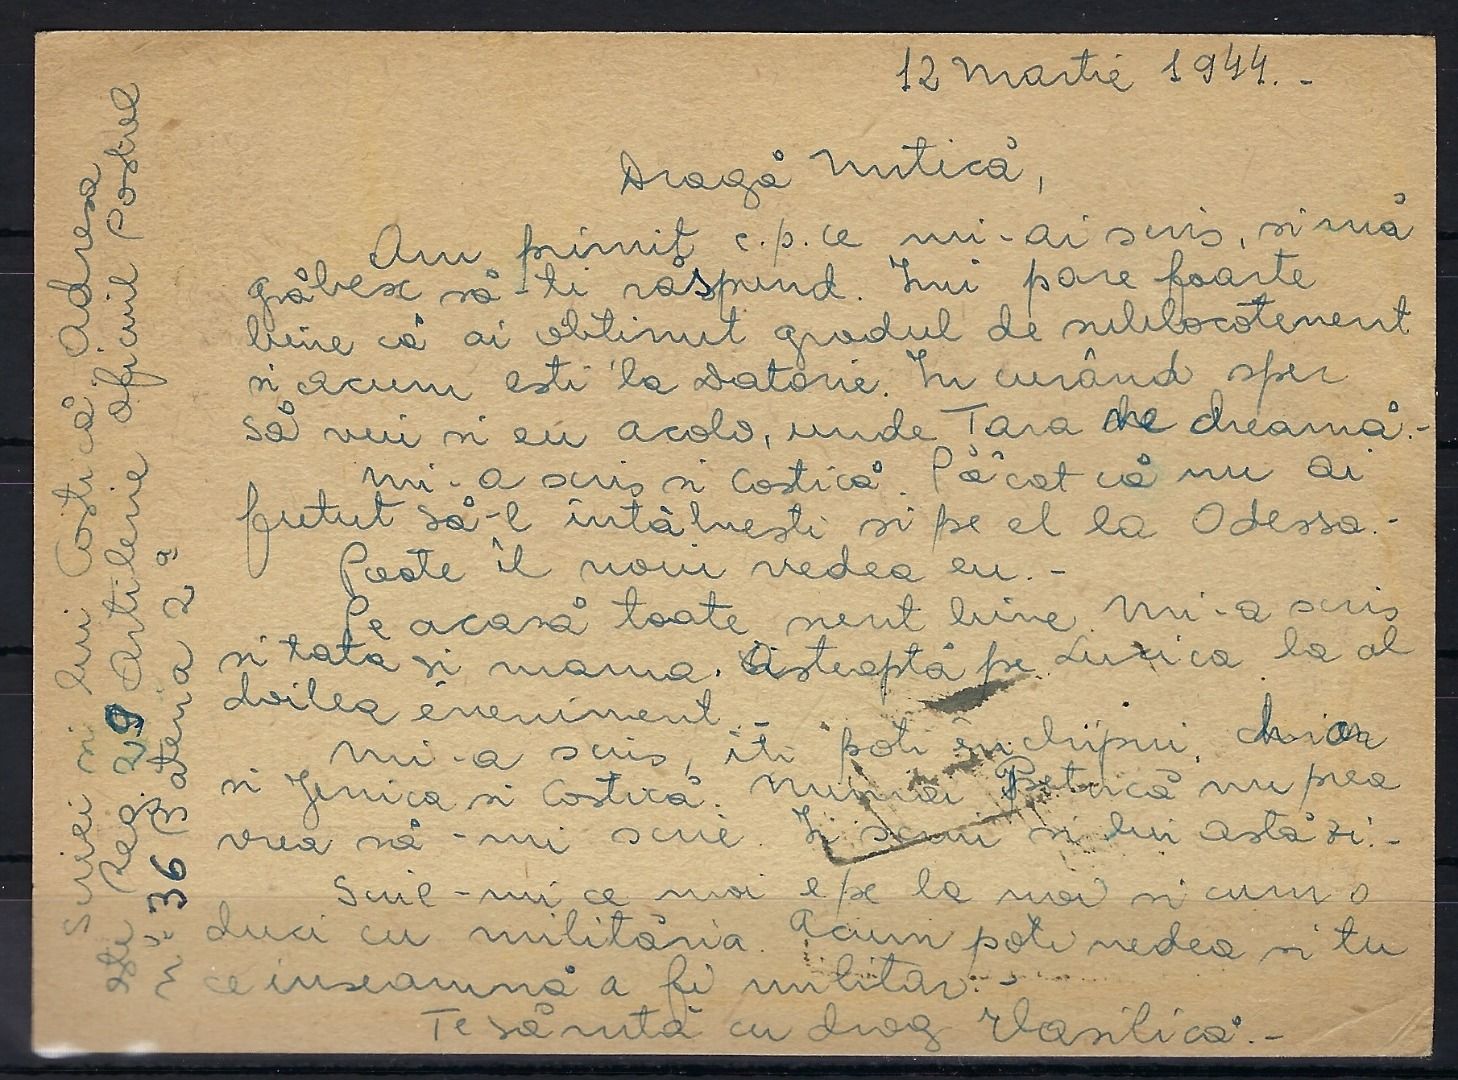 12 Martie 1944.-
Dragă Mitică,
Am primit c.p. ce mi-ai scris, si mă
grăbesc să-ti răspund. Imi pare foarte
bine că ai obtinut gradul de sublocotenent
si acum esti la Datorie. In curând sper
să viu si eu acolo, unde Tara ne cheamă.-
Mi-a scris si Costică. Păcat că nu ai
putut să-l întâlnesti si pe el la Odessa.-
Poate îl voiu vedea eu.-
Pe acasă toate sunt bine. Mi-a scris
si tata si mama. Asteaptă pe Lucica la al
doilea eveniment.-
Mi-a scris, iti poti închipui, chiar
si Jenica si Costică. Numai Petrică nu prea
vrea să-mi scrie. Ii scriu si lui astăzi.-
Scrie-mi ce mai e pe la voi si cum o
duci cu milităria. Acum poti vedea si tu
ce inseamnă a fi militar.-
Te sărută cu drag Vasilică.-
Scriei si lui Costică Adresa
este Reg. 29 Artilerie Oficiul Postal
Nº 36 Bateria 2ª